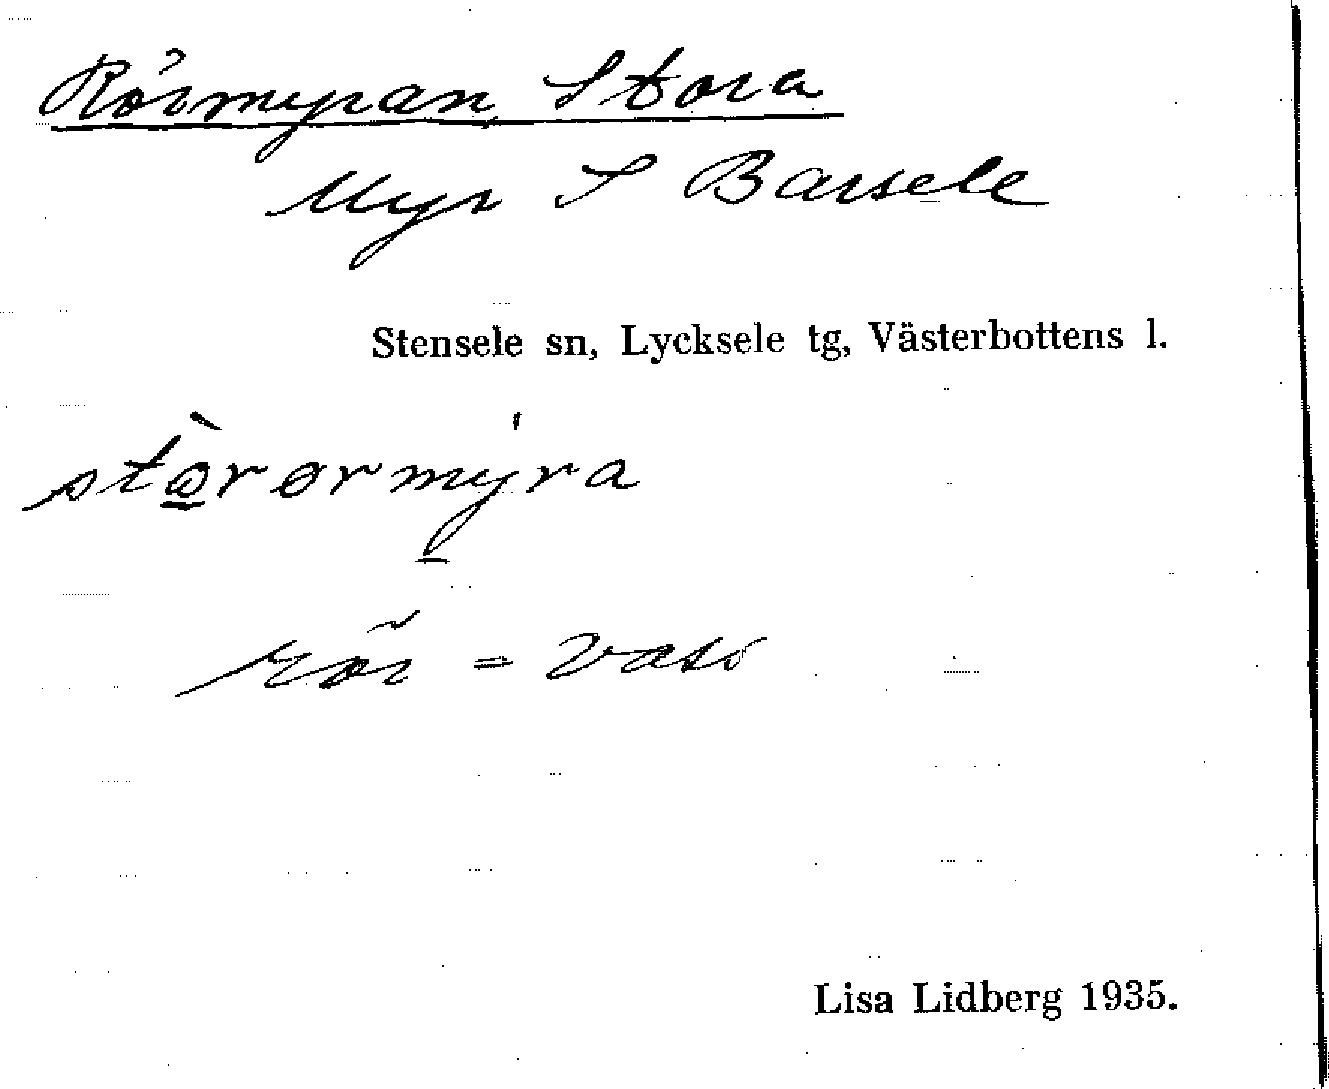 Rörmyran, Stora
Myr S Barsele
Stensele sn, Lycksele tg, Västerbottens l.
stòrørmy̍ra
rör = vass
Lisa Lidberg 1935.